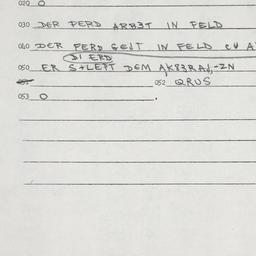 020 O
030 DER PERD ARB3T IN FELD
040 DER PERD GEIT IN FELD
DI ERD
050 ER STLEPT DEM AK83RAJ,-ZN
052 QRUS
053 O